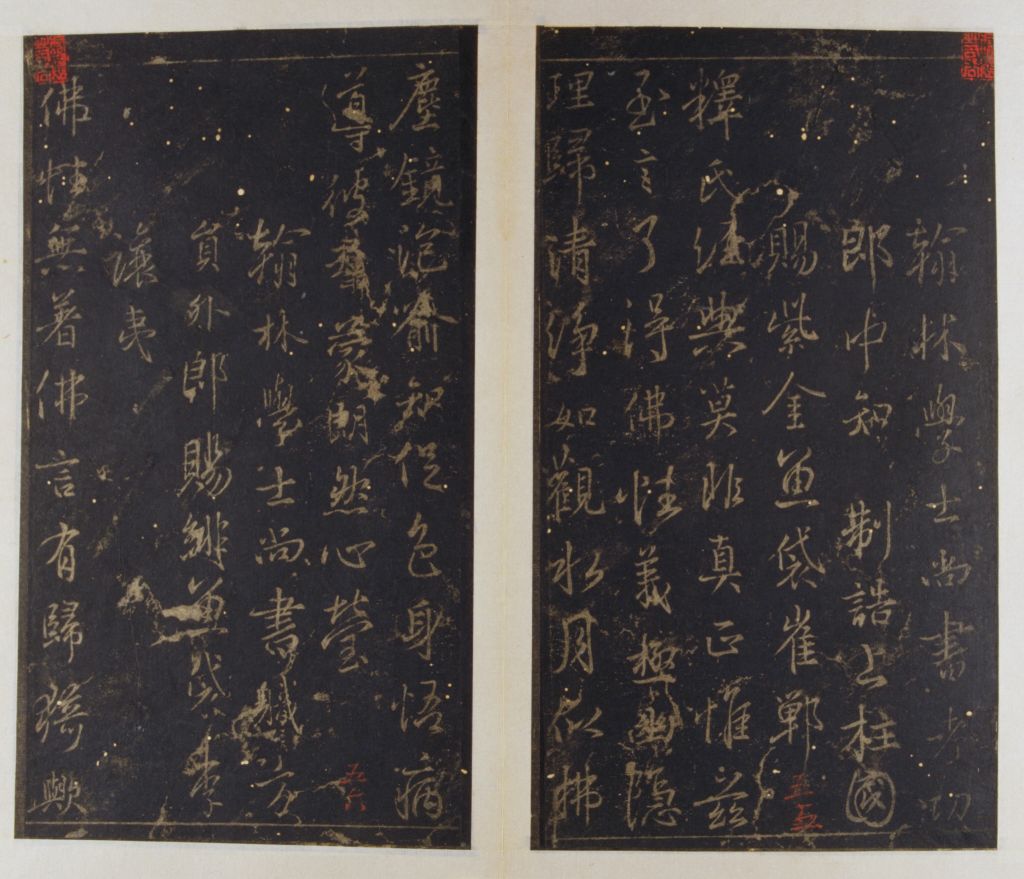 翰林學士尚書考功
郎中知制誥上柱國
賜紫金魚袋崔鄲
五五
釋氏經典莫非真正惟茲
至言了得佛性義極幽隱
理歸清淨如觀水月似拂
塵鏡泡喻知促色身悟病
五六
導彼羣蒙朗然心瑩
翰林學士尚書職方
員外郎賜緋魚袋李
讓夷
佛性無著佛言有歸猗歟